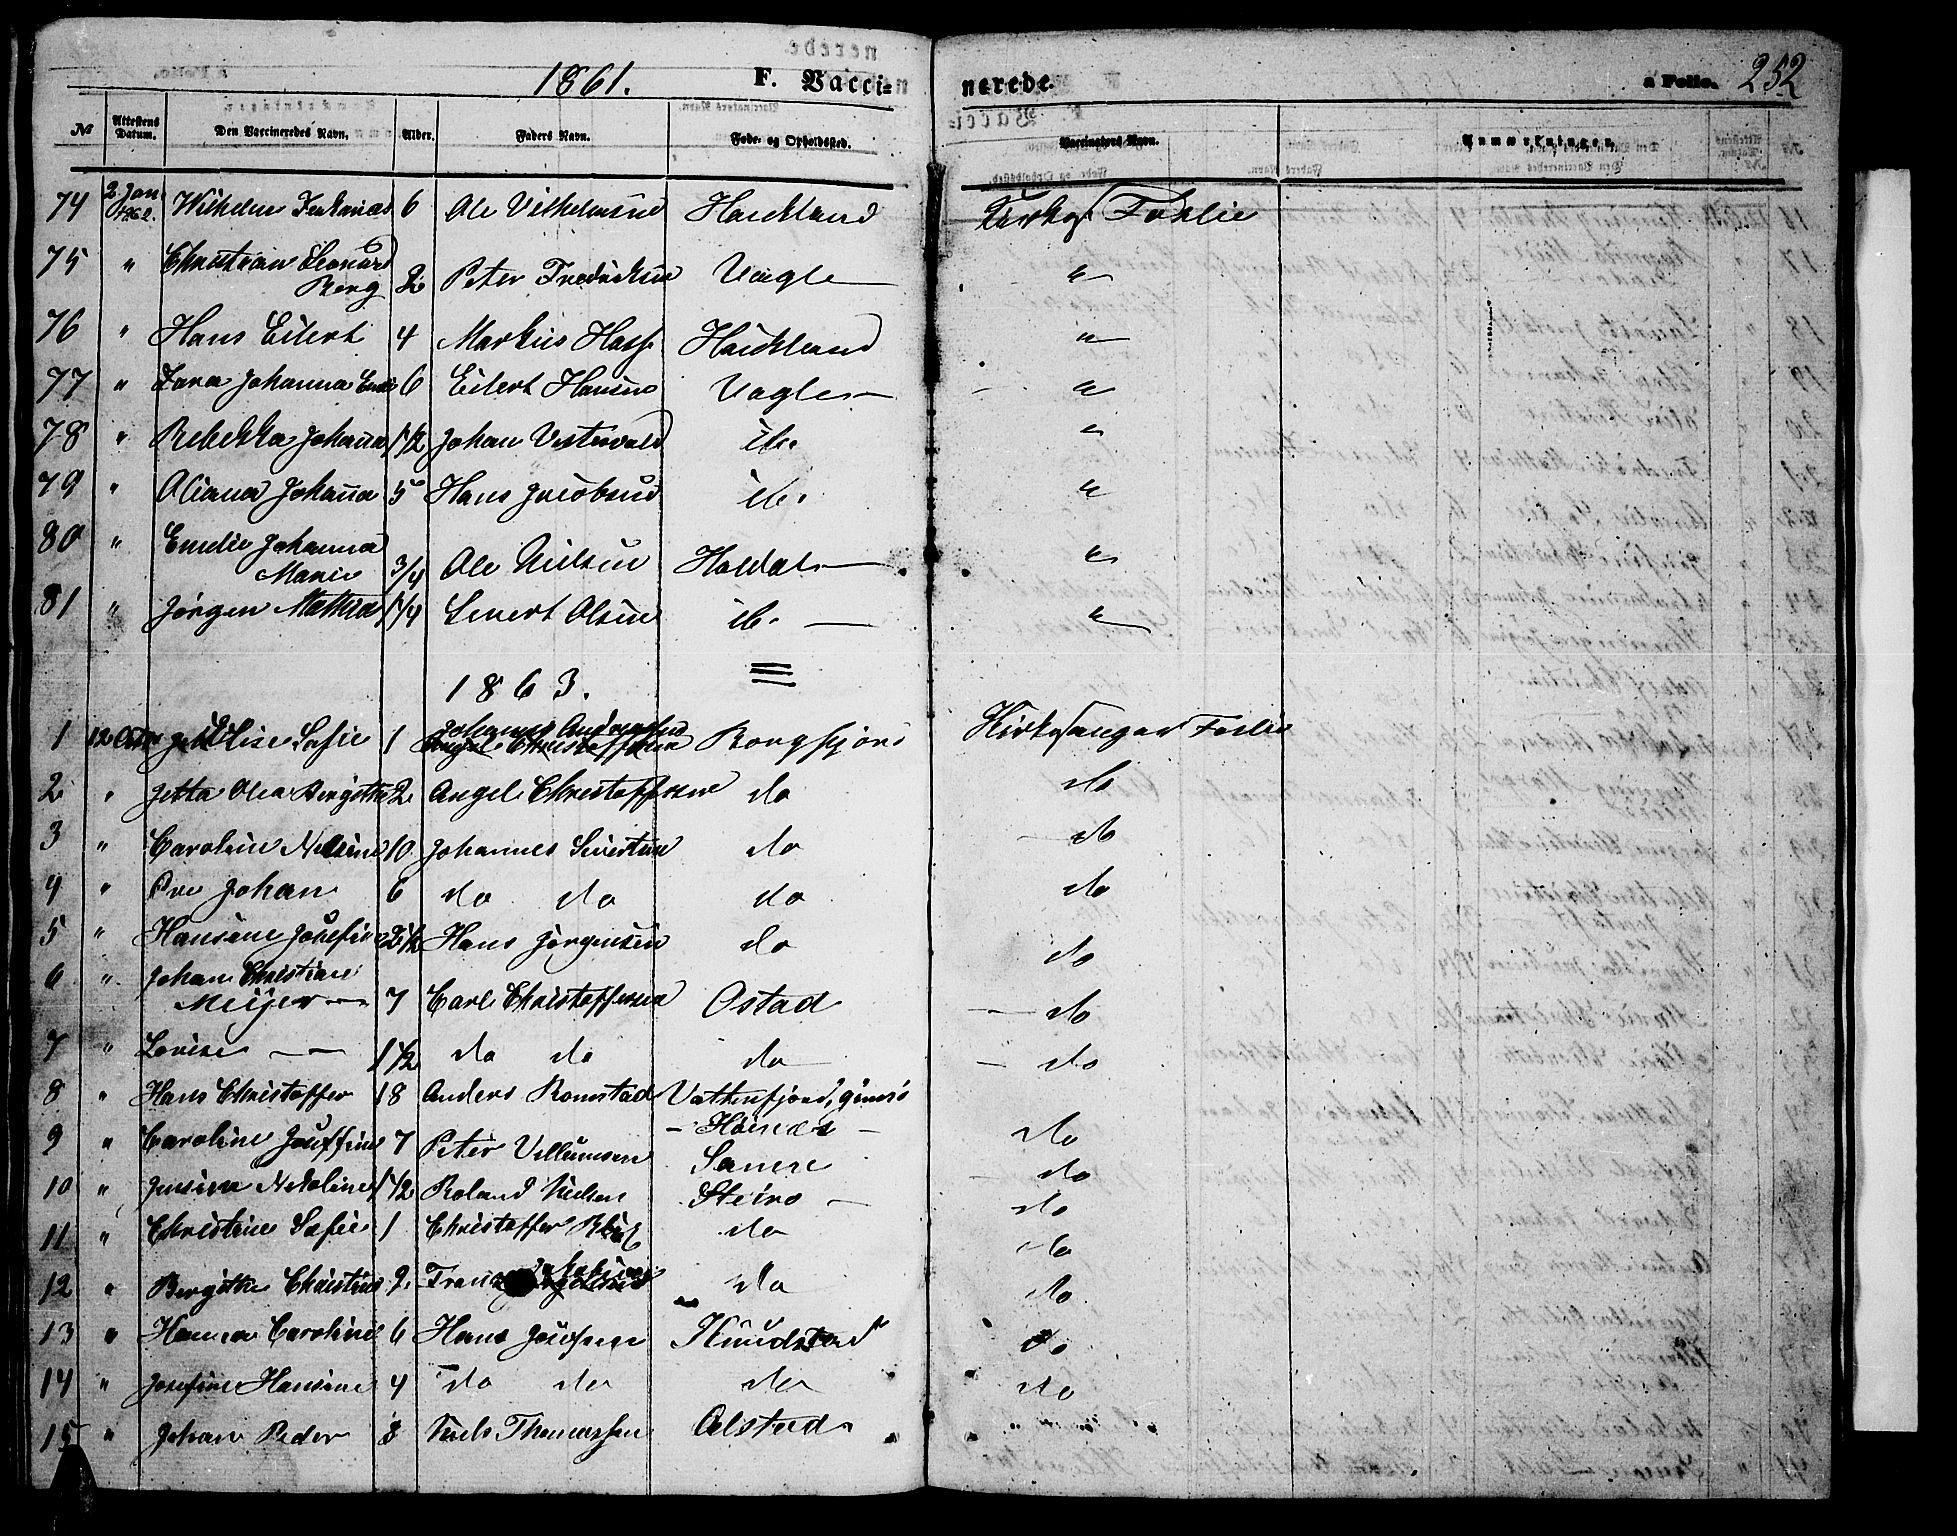 1861. F. Vacci= nerede. a Folio. 252
No Attestens Datum. Den Vaccineredes Navn. Alder. Faders Navn. Føde- og Opholdssted. Vaccinateurs Navn. Anmærkninger.
74 2 Jan 1862. Wilhelm 6 Ole Vilhelmsen Haukland Kirkes. Foslie
75 " Christian Leonard
Berg 2 Peter Fredriksen Vagle "
76 " Hans Eilert 4 Markus Hass Haukland "
77 " Johanna 6 Eilert Hansen Vagle "
78 " Rebekka Johanna 1 1/2 Johan Vestervald ib. "
79 " Oliana Johanna 5 Hans Jacobsen ib. "
80 " Emelie Johanna
Marie 3/4 Ole Nielsen Holdal "
81 " Jørgen Mathias 1 1/4 Sivert Olsen ib. "
1863.
Johannes Andreassen
1 12 Octbr Elise Sofie 1 Angel Christoffersen Borgfjord Kirkesanger Foslie
2 " Jetta Olea Bergithe 2 Angel Christoffersen do do
3 " Caroline Nelsine 10 Johannes Sivertsen do do
4 " Ove Johan 6 do do do do
5 " Hansine Josefine 2 1/2 Hans Jørgensen do do
6 " Johan Christian
Meijer 7 Carl Christoffersen Ostad do
7 " Lovise 1 1/2 do do do do
8 " Hans Christoffer 18 Anders Romstad Vatterfjord, Gimsø
9 " Caroline Joseffine 7 Peter Villumsen - Høines - do
Sanere
10 " Jensine Nekoline 1 1/2 Roland Nielsen Steiro do do
11 " Christine Sofie 1 Christoffer do do
12 " Bergithe Christine 2. Frans do do
13 " Hanna Caroline 6 Hans Josefsen Knudstad do
14 " Josefine Hansine 4 do do do do
15 " Johan Peder 8 Niels Thomassen Alstad "